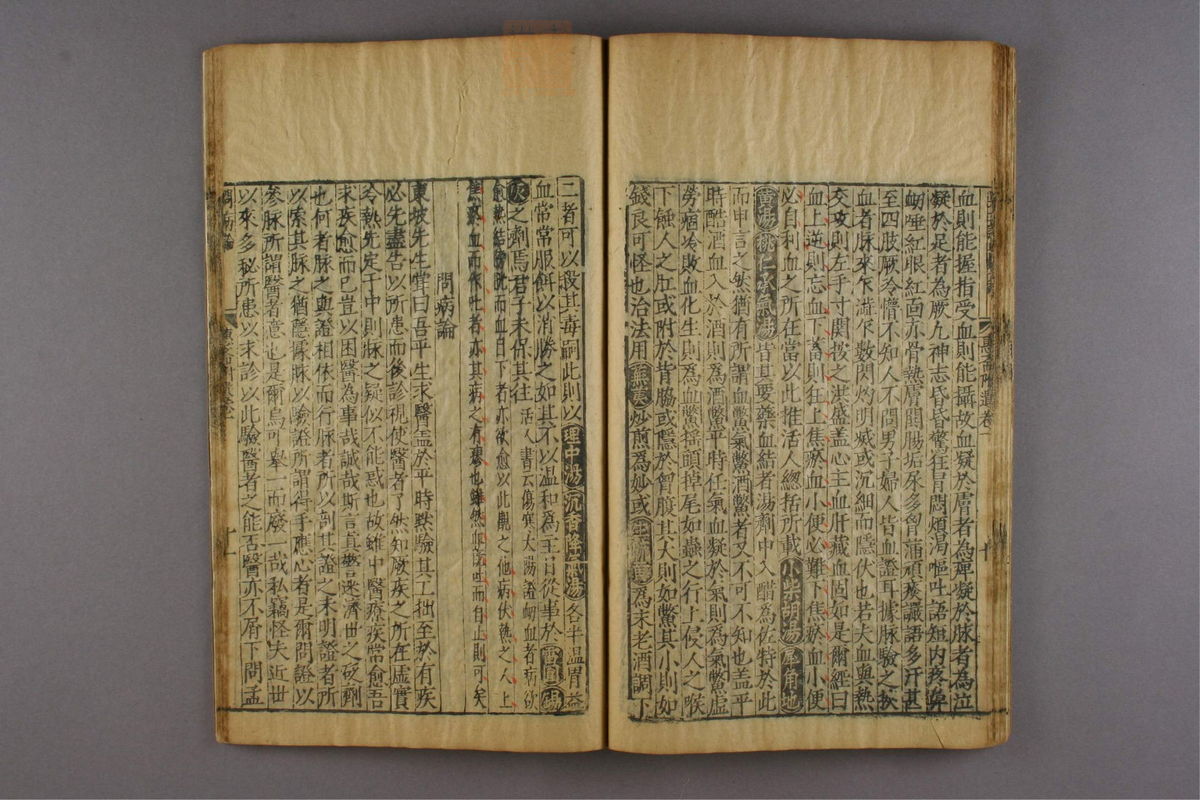 血則能握指受血則能攝故血凝於膚者為痺凝於脉者為泣
凝於足者為厥九神志昏昏驚狂冒悶煩渴嘔吐語短内疼鼻
衄唾紅眼紅面亦骨熱膚閏腸垢尿多胷痛頑痰讝語多汗甚
至四肢厥冷懵不知人不問男子婦人皆血證耳據脉驗之狀
血者脉來乍濇乍數閃灼明滅或沉細而隱伏也若夫血與熱
交攻則左手寸関按之洪盛盖心主血肝藏血固如是爾經曰
血上逆則忘血下畜則狂上焦瘀血小便必難下焦瘀血小便
必自利血之所在當以此推活人緫括所載小柴胡湯犀角地
黄湯桃仁承氣湯皆其要藥血結者湯劑中入醋為佐特於此
而申言之然猶有所謂血鱉氣鱉酒鱉者又不可不知也盖平
時酷酒血入於酒則為酒鱉平時任氣血凝於氣則為氣鱉虚
勞痼冷敗血化生則為血鱉揺頭掉尾如蟲之行上侵人之喉
下蝕人之肛或附於背膓或隱於胷腹其大則如鱉其小則如
錢良可怪也治法用蕪荑炒煎為妙或為末老酒調下
二者可以殺其毒嗣此則以理中湯沉香降氣湯各半温胃益
血常常服餌以消勝之如其不以温和為主日從事於雷囬錫
灰之劑焉君子未保其往活人書云傷寒太陽證衂血者病欲
愈熱結膀胱而血自下者亦欲愈以此觀之他病伏熱之人上
焦瘀血而作吐者亦其病之有瘳也雖然血喜止而自止則可矣
問病論
東坡先生甞曰吾平生求醫盖於平時黙驗其工拙至於有疾
必先盡告以所患而後診視使醫者了然知厥疾之所在虚實
冷熱先定于中則脉之疑似不能惑也故雖中醫療疾常愈吾
求疾愈而已豈以困醫為事哉誠哉斯言真警迷濟世之砭劑
也何者脉之與證相依而行脉者所以剖其證之未明證者所
以索其脉之猶隱揣脉以驗證所謂得手應心者是爾問證以
參脉所謂醫者意也是爾烏可舉一而廢一哉私竊怪夫近世
以來多秘所患以求診以此驗醫者之能否醫亦不屑下問孟